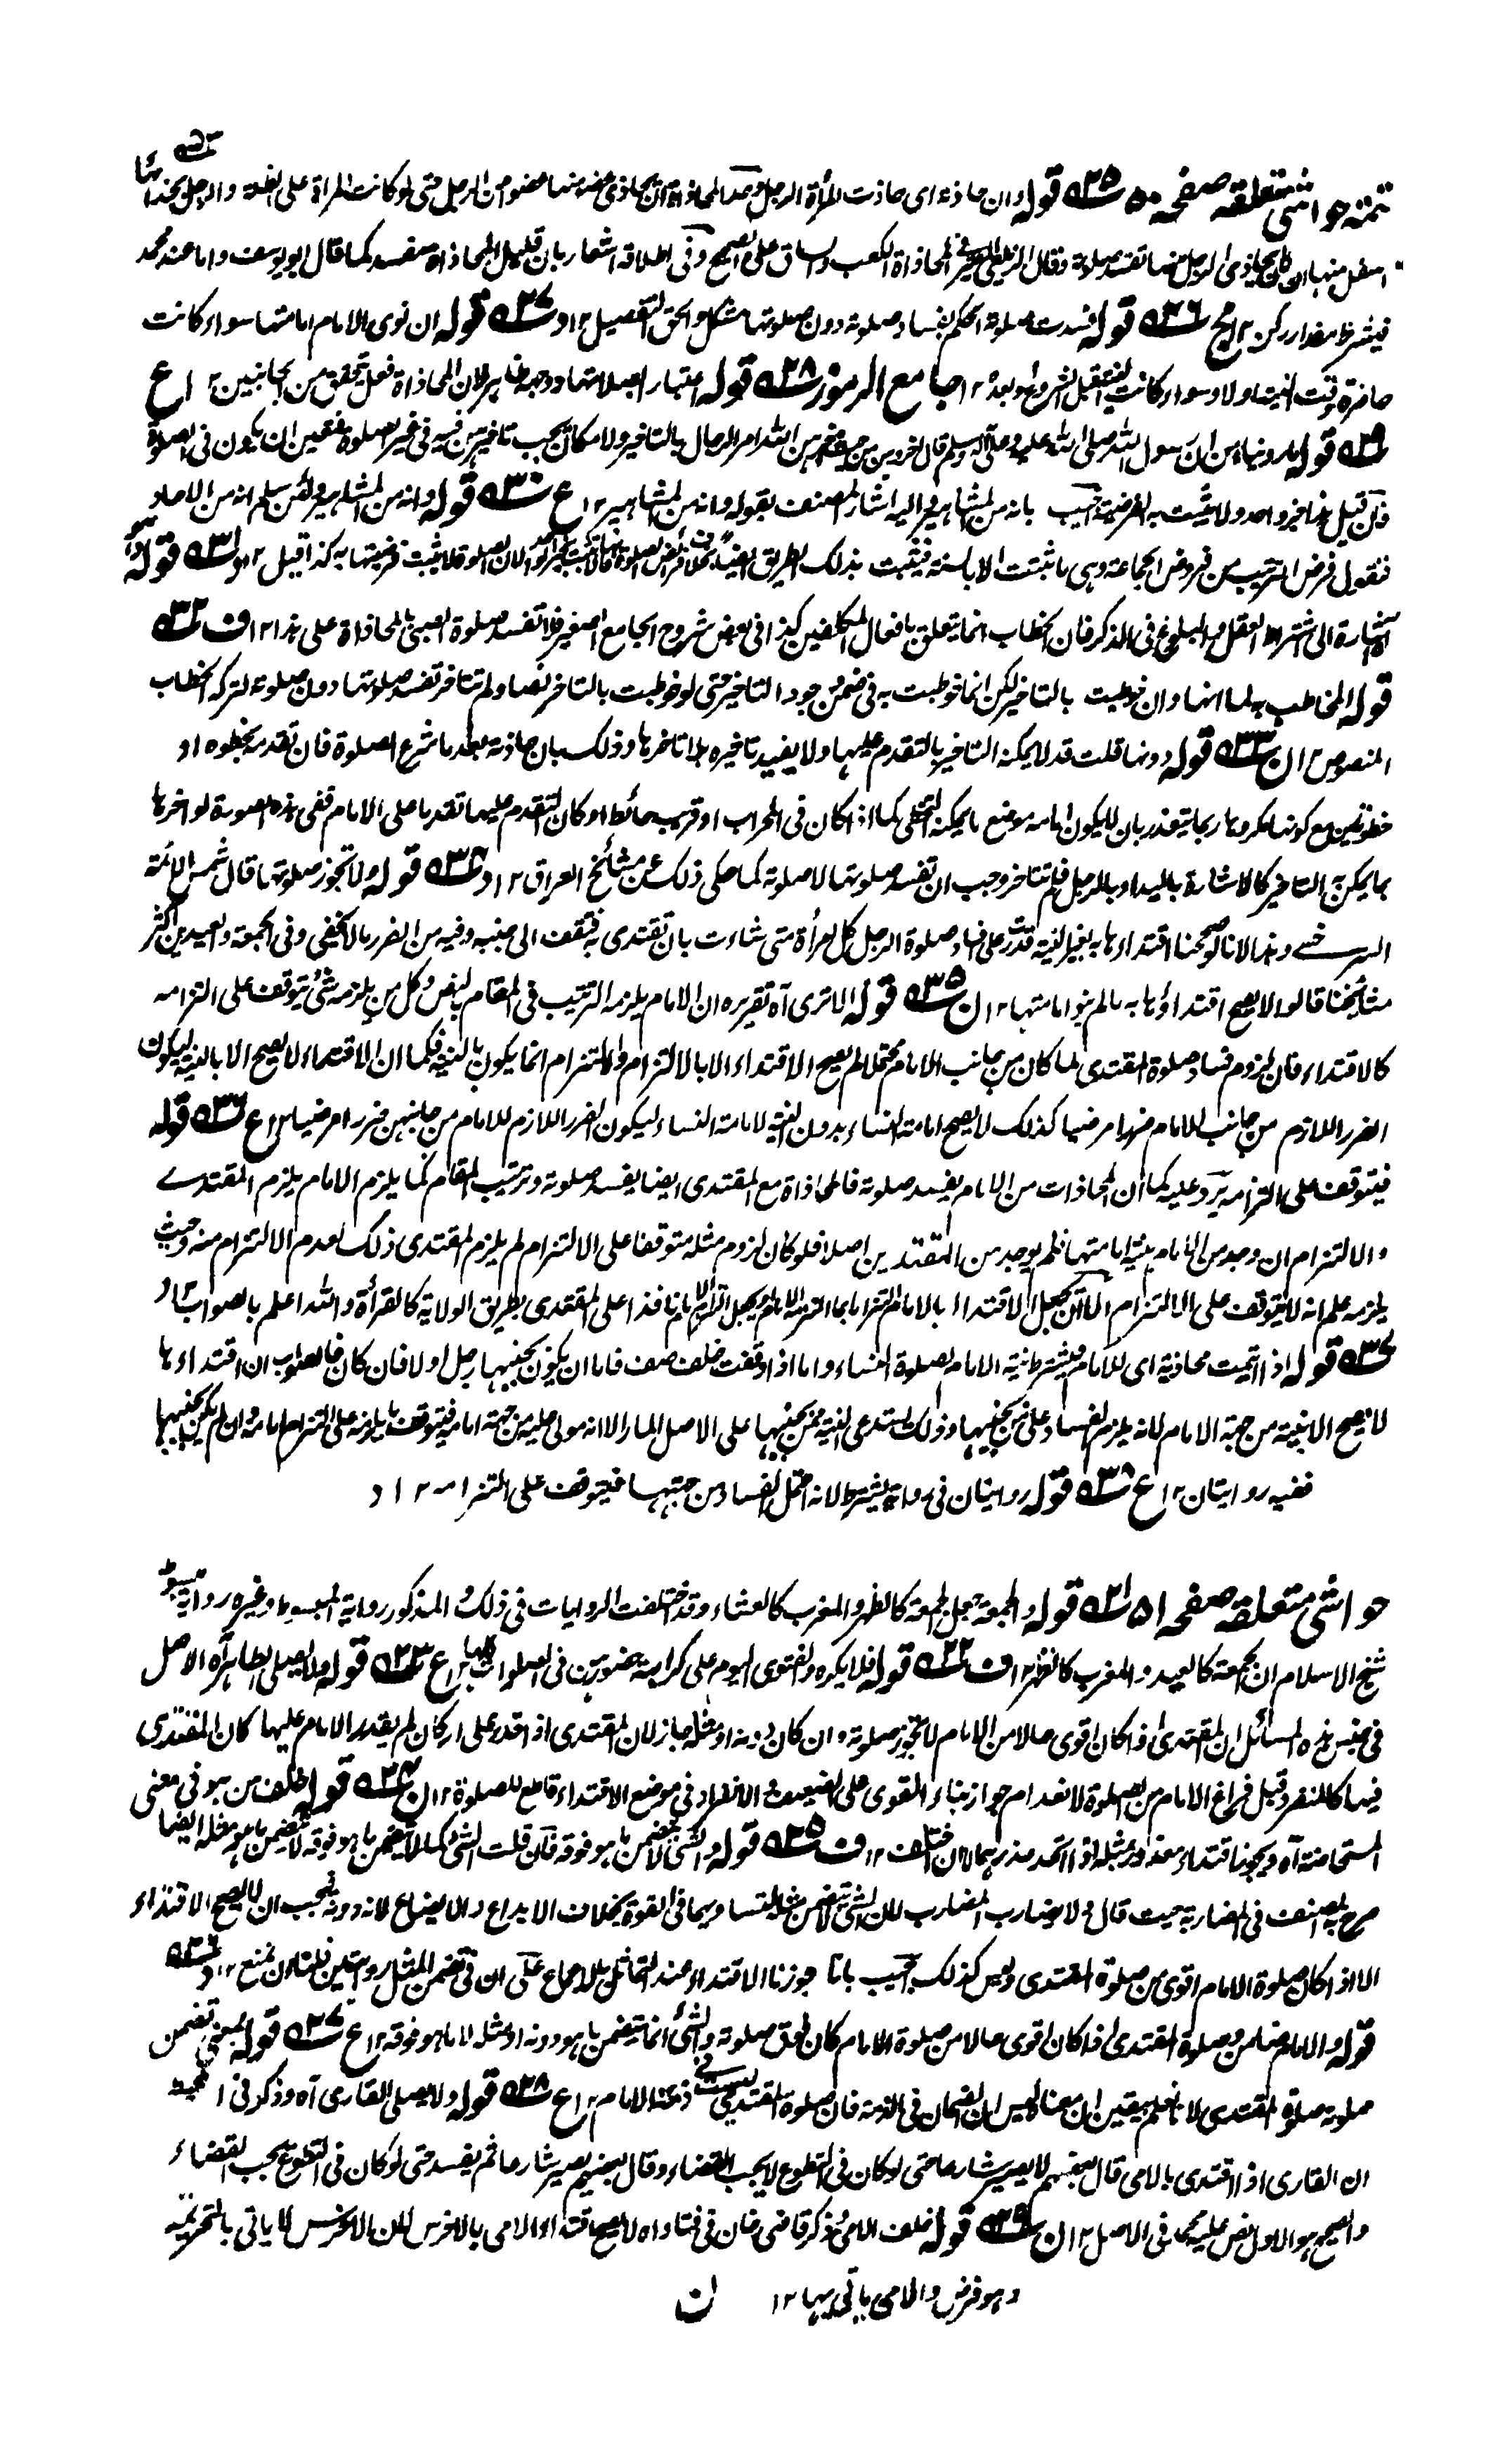 تتمة حواشی متعلقه صفحه ۵۰ ۳۵ قوله وان حاذته ای حاذت المرأة الرجل وحد المحاذاة ان يحاذی عضو منها عضوا من الرجل حتی لو كانت المرأة على الظلة والرجل بحذائها
اسفل منها ان كان يحاذی الرجل منها تفسد صلوته وقال الزيلعی المعتبر فی المحاذاة الكعب والساق على الصحيح وفی اطلاقه اشعار بان قليل المحاذاة مفسد كما قال ابو يوسف واما عند محمد
فيشترط مقدار ركن ۱۲ مج ۳۶ قوله فسدت صلوته الحكم بفساد صلوته دون صلوتها مشكل والحق التفصيل ۱۲ د ۳۷ قوله ان نوى الامام امامتها سواء كانت
حاضرة وقت النية اولا وسواء كانت النية قبل الشروع او بعده ۱۲ جامع الرموز ۳۸ قوله اعتبارا بصلاتها ووجهه ظاهر لان المحاذاة فعل يتحقق من الجانبين ۱۲ ع
۳۹ قوله ما رويناه من ان رسول الله صلى الله عليه وعلى آله وسلم قال اخروهن من حيث اخرهن الله امر الرجال بالتاخير ولا مكان يجب تاخيرهن فيه فی غير الصلوة فتعين ان يكون فی الصلوة
فان قيل هذا خبر واحد ولا يثبت به الفرضية اجيب بانه من المشاهير واليه اشار المصنف بقوله وانه من المشاهير ۱۲ ع ۳۰ قوله وانه من المشاهير ولئن سلم انه من الاحاد
فنقول فرض الترتيب من فروض الجماعة وهی ما ثبتت الا بالسنة فيثبت بذلك الطريق ايضا بخلاف فرائض الصلوة فانها لا تثبت بخبر الواحد لان الصلوة لا تثبت فرضيتها به كذا قيل ۱۲ د ۳۱ قوله
اشارة الى اشتراط العقل والبلوغ فی الذكر فان الخطاب انما يتعلق بافعال المكلفين كذا فی بعض شروح الجامع الصغير فلا تفسد صلوة الصبی بالمحاذاة على هذا ۱۲ ف ۳۲
قوله المخاطب به لما انها وان خوطبت بالتاخير لكن انما خوطبت به فی ضمن وجود التاخير حتى لو خوطبت بالتاخر نصا ولم تتاخر تفسد صلوتها دون صلوته لتركه الخطاب
المنصوص ۱۲ ن ۳۳ قوله دونها قلت قد لا يمكنه التاخير بالتقدم عليها ولا يفيد تاخيره بلا تاخرها وذلك بان حاذته بعد ما شرع الصلوة فان تقدمه بخطوة او
خطوتين مع كونها مكروها ربما يتعذر بان لا يكون امامه موضع ما يمكنه التخطی كما اذا كان فی المحراب او قريب حائط او كان التقدم عليها تقدما على الامام ففی هذه الصورة لو اخرها
بما يمكن به التاخير كالاشارة باليد او بالرجل فلم تتاخر وجب ان تفسد صلوتها لا صلوته كما حكی ذلك عن مشائخ العراق ۱۲ د ۳۴ قوله ولا تجوز صلوتها قال شمس الائمة
السرخسی وهذا لانا لو صححنا اقتداءها به بغير النية قدرت على فساد صلوة الرجل كل امرأة متى شاءت بان تقتدی به فتقف الى جنبه وفيه من الضرر ما لا يخفى وفی الجمعة والعيدين اكثر
مشائخنا قالوا لا يصح اقتداؤها به ما لم ينو امامتها ۱۲ ن ۳۵ قوله الا ترى آه تقريره ان الامام يلزمه الترتيب فی المقام بالنص وكل من يلزمه شئ يتوقف على التزامه
كالاقتداء فان لزوم فساد صلوة المقتدی لما كان من جانب الامام محتملا لم يصح الاقتداء الا بالالتزام والالتزام انما يكون بالنية فكما ان الاقتداء لا يصح الا بالنية ليكون
الضرر اللازم من جانب الامام ضررا مرضيا كذلك لا يصح امامة النساء بدون النية لامامة النساء ليكون الضرر اللازم للامام من جانبهن ضررا مرضيا ۱۲ ع ۳۶ قوله
فيتوقف على التزامه يرد عليه كما ان المحاذات من الامام يفسد صلوته فالمحاذاة مع المقتدی ايضا يفسد صلوته وترتيب المقام كما يلزم الامام يلزم المقتدے
والالتزام ان وجد من الامام بنية امامتها فلم يوجد من المقتدين اصلا فلو كان لزوم مثله متوقفا على الالتزام لم يلزم المقتدی ذلك لعدم الالتزام منه وحيث
يلزمه علم انه لا يتوقف على الالتزام الا ان يجعل الاقتداء بالامام التزاما بما التزمه الامام ويجعل التزام الامام نافذا على المقتدی بطريق الولاية كالقرأة والله اعلم بالصواب ۱۲ د
۳۷ قوله اذا ائتمت محاذية ای للامام فيشترط نية الامام لصلوة النساء واما اذا وقفت خلف صف فاما ان يكون بجنبها رجل او لا فان كان فالصواب ان اقتداءها
لا يصح الا بنية من جهة الامام لانه يلزم الفساد على من بجنبها وذلك يستدعی النية ممن بجنبها على الاصل المار الا انه مولى عليه من جهة امامه فيتوقف ما يلزمه على التزام امامه وان لم يكن بجنبها
ففيه روايتان ۱۲ ع ۳۸ قوله روايتان فی رواية يشترط لانه احتمل الفساد من جهتها فيتوقف على التزامه ۱۲ د
حواشی متعلقه صفحه ۵۱ ۲۱ قوله والجمعة جعل الجمعة كالظهر والمغرب كالعشاء وقد اختلفت الروايات فی ذلك والمذكور رواية المبسوط وغيره رواية مبسوط
شيخ الاسلام ان الجمعة كالعيد والمغرب كالظهر ۱۲ ف ۲۲ قوله فلا يكره والفتوى اليوم على كراهة حضورهن فی الصلوات كلها ۱۲ ع ۲۳ قوله ولا يصلی الطاهر آه الاصل
فی جنس هذه المسائل ان المقتدی اذا كان اقوى حالا من الامام لا تجوز صلوته وان كان دونه او مثله جاز لان المقتدی اذا قدر على اركان لم يقدر الامام عليها كان المقتدی
فيها كالمنفرد قبل فراغ الامام من الصلوة لانعدام جواز بناء القوی على الضعيف والانفراد فی موضع الاقتداء قاطع للصلوة ۱۲ ن ۲۴ قوله خلف من هو فی معنى
المستحاضة آه ويجوز اقتداء معذور بمثله اذا اتحد عذرهما لا ان اختلف ۱۲ ف ۲۵ قوله والشئ لا يتضمن ما هو فوقه فان قلت الشئ كما لا يتضمن ما هو فوقه لا يتضمن ما هو مثله ايضا
صرح به المصنف فی المضاربة حيث قال ولا يضارب المضارب لان الشئ لا يتضمن مثله لتساويهما فی القوة بخلاف الايداع والابضاع لانه دونه فيجب ان لا يصح الاقتداء
الا اذا كان صلوة الامام اقوى من صلوة المقتدی وليس كذلك اجيب بانا جوزنا الاقتداء عند التماثل بالاجماع على ان فی تضمن المثل روايتين فلنا ان نمنع ۱۲ د ۲۶
قوله والامام ضامن وصلوة المقتدی اذا كان اقوى حالا من صلوة الامام كان فوق صلوته والشئ انما يتضمن ما هو دونه او مثله لا ما هو فوقه ۱۲ ع ۲۷ قوله بمعنى تضمن
صلوته صلوة المقتدی لانا نعلم بيقين ان معناه ليس ان الضمان فی الذمة فان صلوة المقتدی ليست فی ذمة الامام ۱۲ ع ۲۸ قوله ولا يصلی القاری آه وذكر فی المحيط
ان القاری اذا اقتدی بالامی قال بعضهم لا يصير شارعا حتى لو كان فی التطوع لا يجب القضاء وقال بعضهم يصير شارعا ثم يفسد حتى لو كان فی التطوع يجب القضاء
والصحيح هو الاول نص عليه محمد فی الاصل ۱۲ ن ۲۹ قوله خلف الامی ذكر قاضی خان فی فتاواه لا يصح اقتداء الامی بالاخرس لان الاخرس لا ياتی بالتحريمة
وهو فرض والامی ياتی بها ۱۲ ن